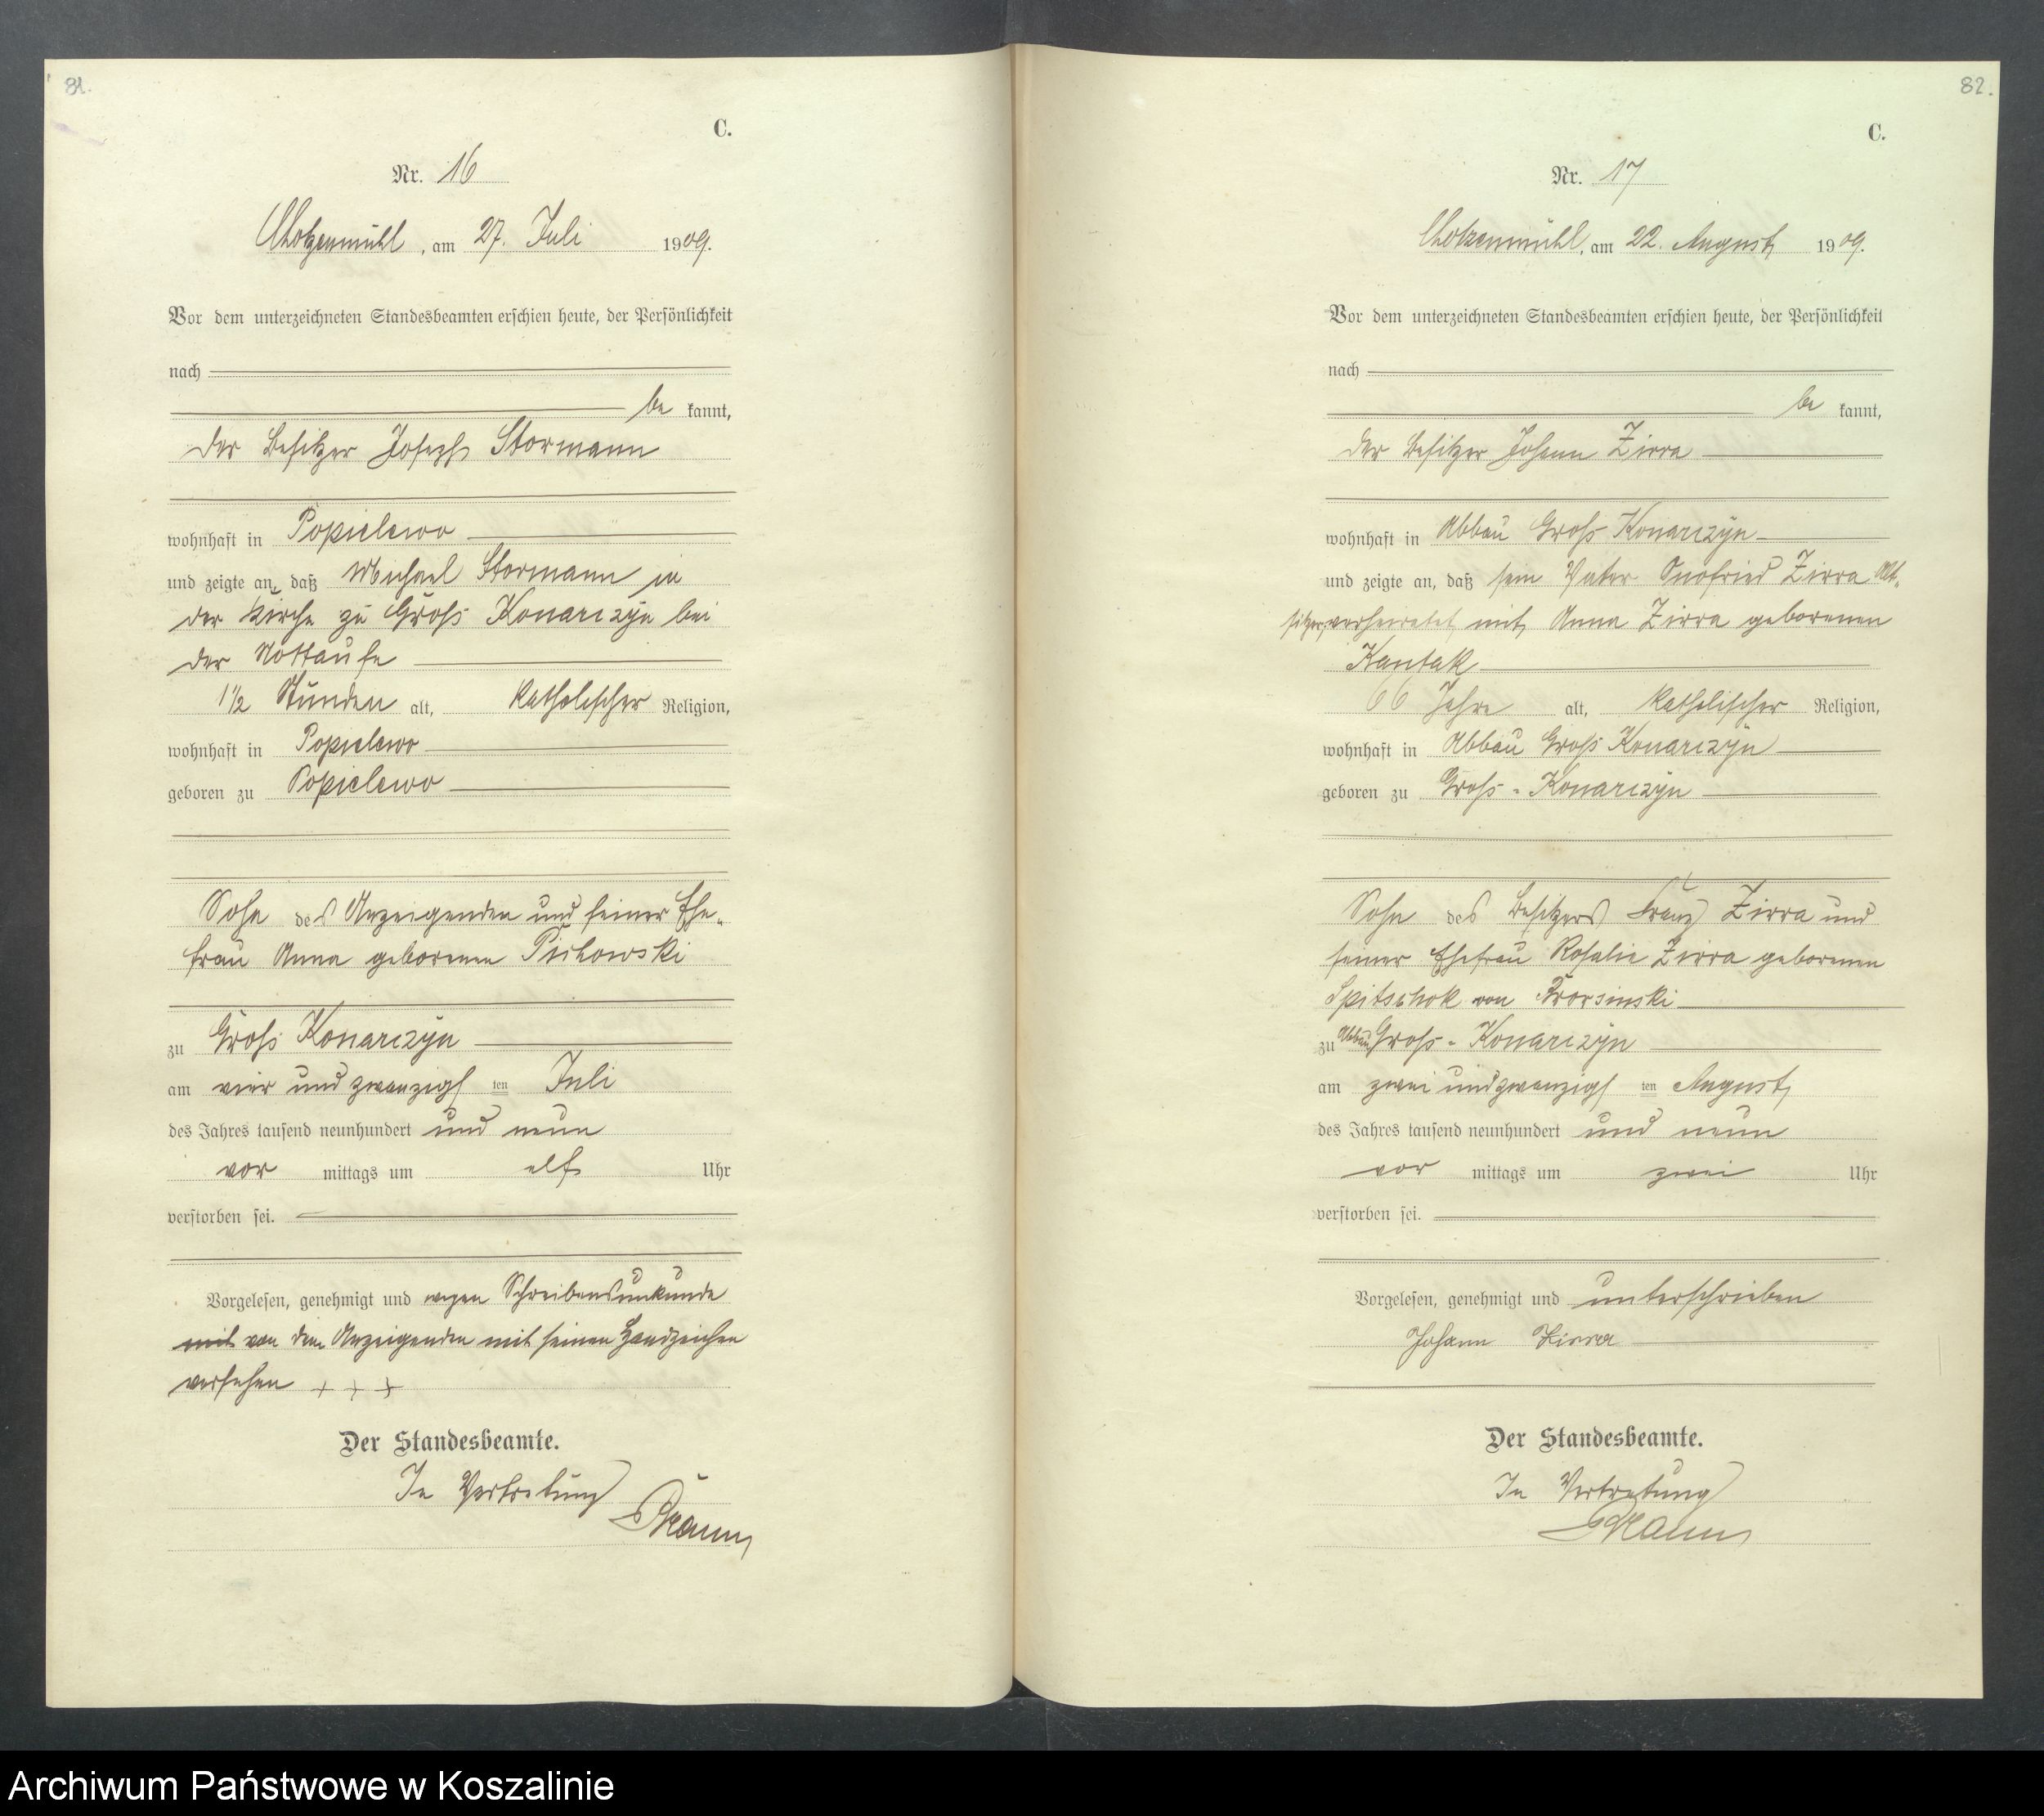 81.
C.
Nr. 16
Chotzenmühl, am 27. Juli 1909.
Vor dem unterzeichneten Standesbeamten erschien heute, der Persönlichkeit
nach
be kannt,
der Besitzer Joseph Stormann
wohnhaft in Popielewo
und zeigte an, daß Michael Stormann in
der Kirche zu Groß Konarczyn bei
der Nottaufe
1½ Stunden alt, katholischer Religion,
wohnhaft in Popielewo
geboren zu Popielewo
Sohn des Anzeigenden und seiner Ehe-
frau Anna geborenen
zu Groß Konarczyn
am vier und zwanzigsten Juli
des Jahres tausend neunhundert und neun
vor mittags um elf Uhr
verstorben sei.
Vorgelesen, genehmigt und wegen Schreibensunkunde
mit von dem Anzeigenden mit seinen Handzeichen
versehen + + +
Der Standesbeamte.
In Vertretung
82.
C.
Nr. 17
Chotzenmühl, am 22. August 1909.
Vor dem unterzeichneten Standesbeamten erschien heute, der Persönlichkeit
nach
be kannt,
der Besitzer Johann Zirra
wohnhaft in Abbau Groß Konarczyn
und zeigte an, daß sein Vater Onofried Zirra Alt-
sitzer, verheiratet mit Anna Zirra geborenen
Kantak
66 Jahre alt, katholischer Religion,
wohnhaft in Abbau Groß Konarczyn
geboren zu Groß-Konarczyn
Sohn des Besitzers Franz Zirra und
seiner Ehefrau Rosalie Zirra geborenen
Spitschok von
zu Abbau Groß-Konarczyn
am zwei und zwanzigsten August
des Jahres tausend neunhundert und neun
vor mittags um zwei Uhr
verstorben sei.
Vorgelesen, genehmigt und unterschrieben
Johann Zirra
Der Standesbeamte.
In Vertretung
Archiwum Państwowe w Koszalinie